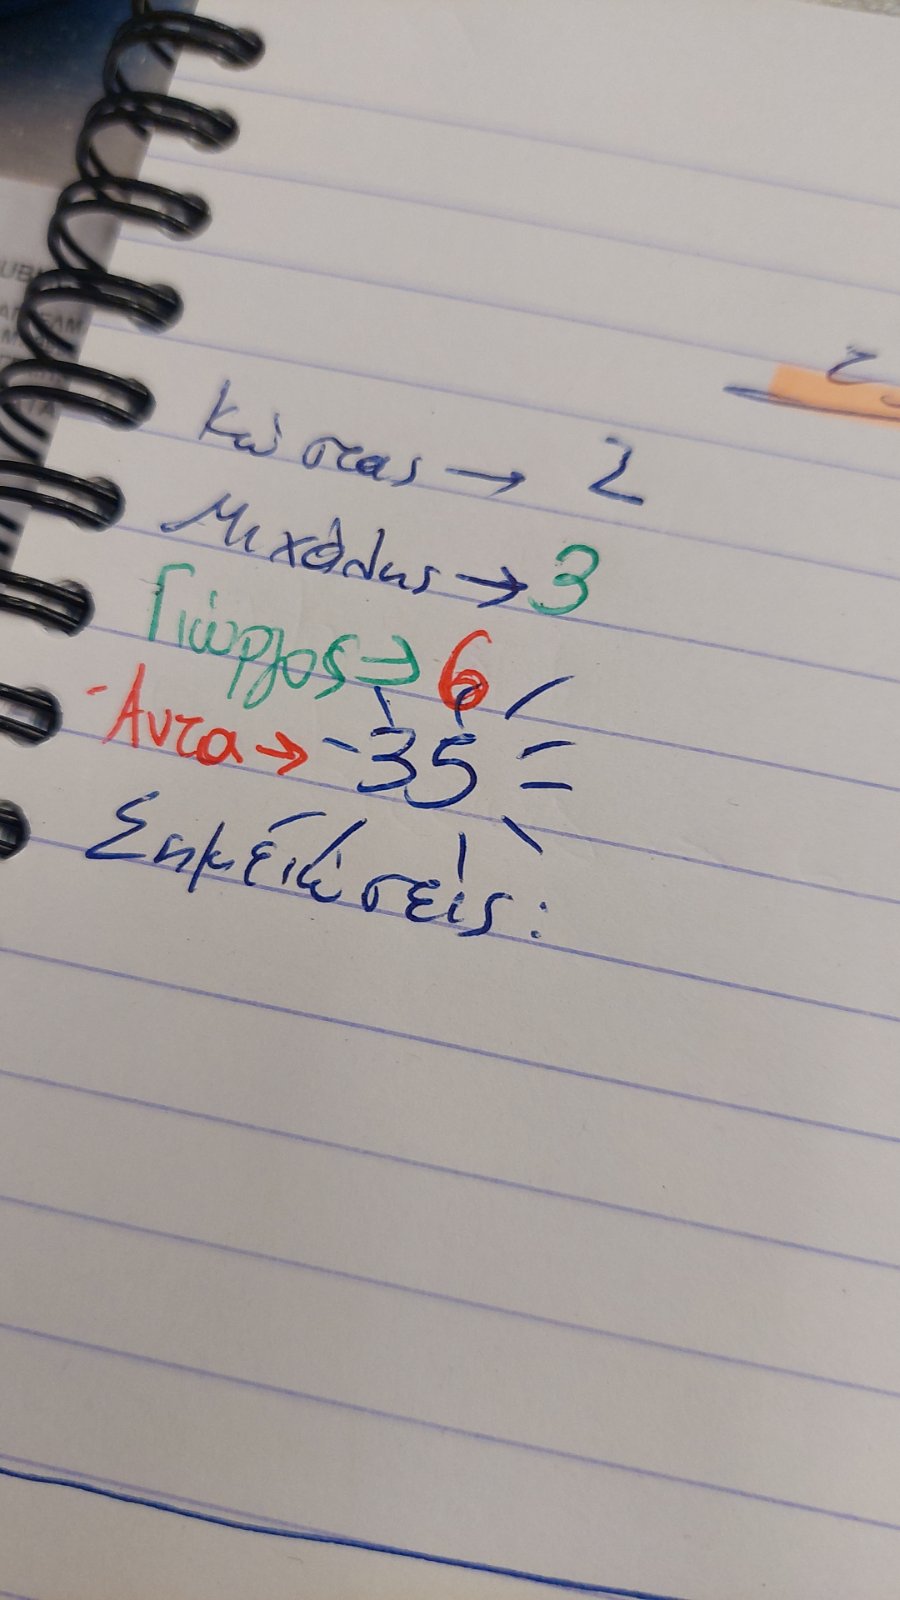 Κώστας → 2
Μιχάλης → 3
Γιώργος → 6
-Άντα → -35
Σημειώσεις: